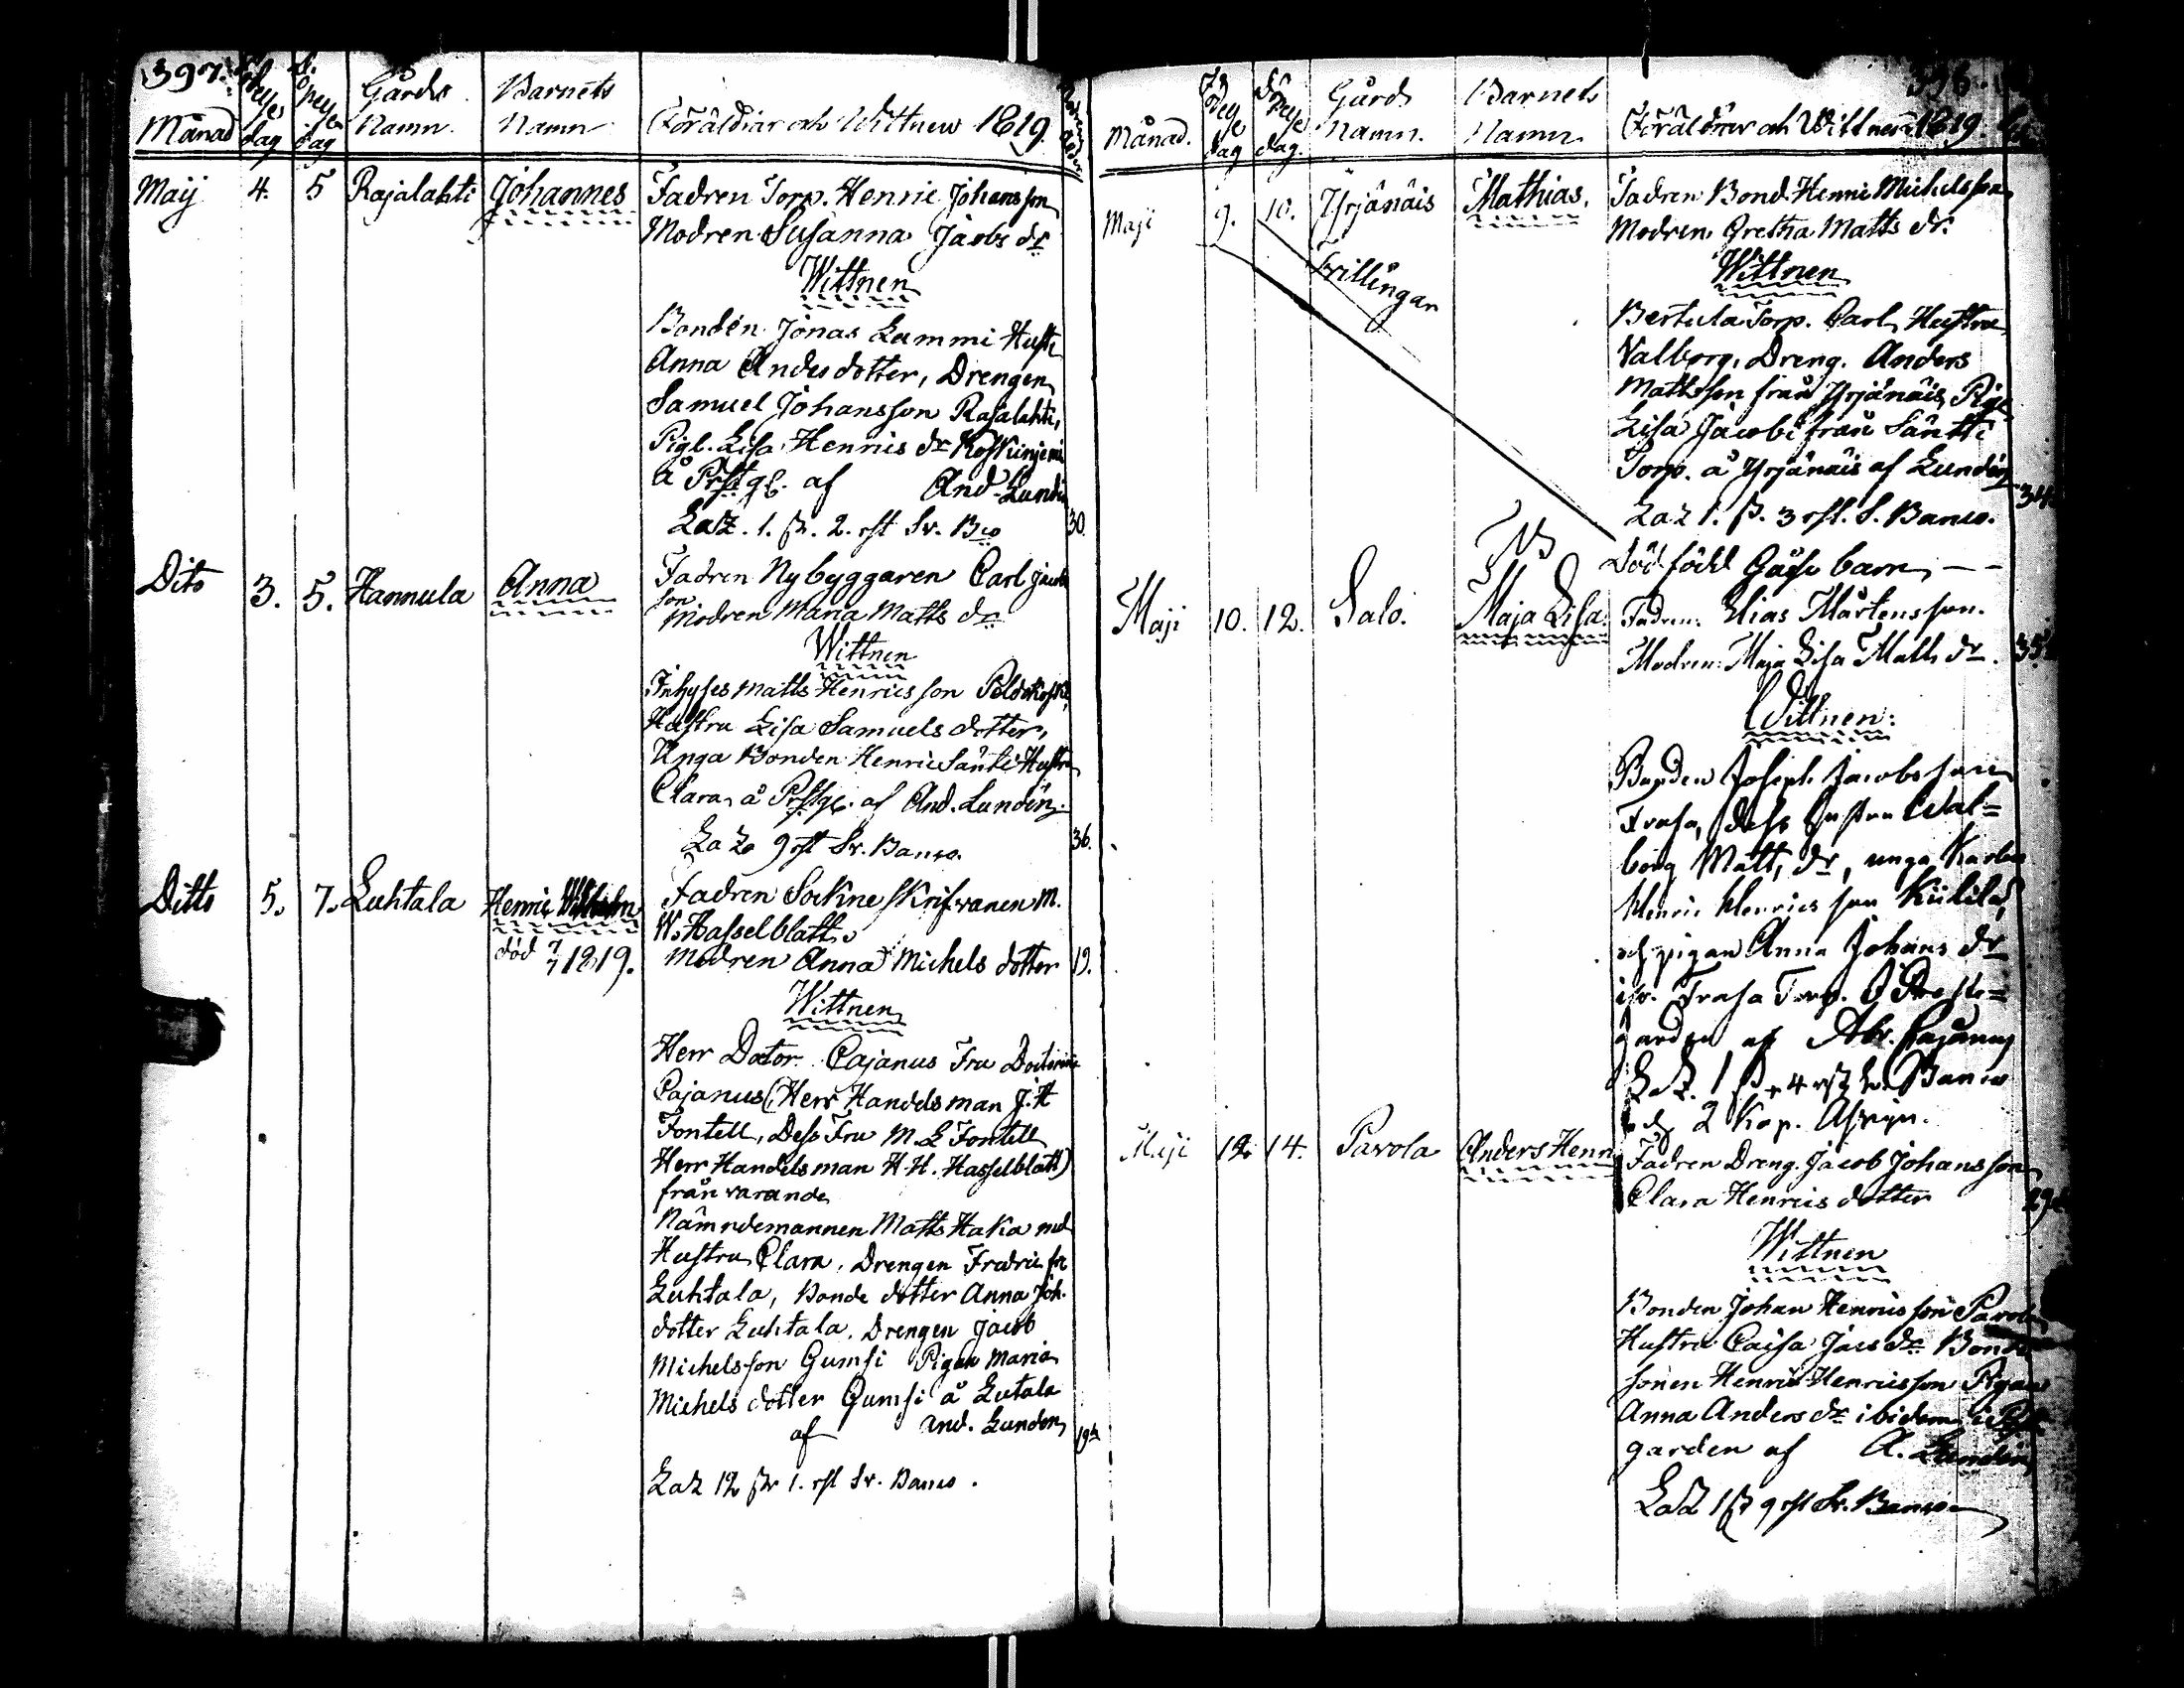 397.
Månad
dag
dag
Gårds Namn
Barnets Namn
Föräldrar och Wittnen 1819.
Maij 4. 5 Rajalahti Johannes
Fadren Torp. Henric Johansson
Modren Susanna Jacobs dr
Wittnen
Bonden Jonas Lammi Hust.
Anna Andesdotter, Drengen
Samuel Johansson Rajalahti,
Pig. Lisa Henrics dr Koskinjemi
å Prstg. af And. Lundin
LaZ. 1. β. 2. rst Sv. Bco
30.
Dito 3. 5. Hannula Anna
Fadren Nybyggaren Carl Jacobs
son
Modren Maria Matts dr
Wittnen
Inhyses Matts Henricsson
Hustru Lisa Samuels dotter,
Unga Bonden Henric Säntti Hustru
Clara å Prstg. af And. Lundin.
LaZ 9 rst Sv. Banco.
36.
Ditto 5. 7. Luhtala Henric Wilhelm
död 7/7 1819.
Fadren Sockne skrifvaren M.
W. Hasselblatt.
Modren Anna Michels dotter
19.
Wittnen
Herr Doctor Cajanus Fru Doctorin
Cajanus (Herr Handelsman J. H
Fontell, Dess Fru M. L Fontell
Herr Handelsman H. H. Hasselblatt)
från varande
Nämndemannen Matts Haka med
Hustru Clara, Drengen Fredric fr
Luhtala, Bonde dotter Anna Joh.
dotter Luhtala. Drengen Jacob
Michelsson Gumsi Pigan Maria
Michels dotter Gumsi å Lutala
af And. Lunden
LaZ 12 β 1. rst Sv. Banco.
Månad.
dag
dag.
Gård Namn.
Barnets Namn
Föräldrar och Wittnen 1819.
Maji 9. 10. Yrjänäis Mathias.
Fadren Bond. Henric Michelsson
Modren Gretha Matts dr.
Tvillingar
Wittnen
Bertula Torp. Carl, Hustru
Valborg, Dreng. Anders
Mattsson från Yrjänäis, Pig.
Lisa Jacobi från Säntti
Torp. å Yrjänäis af Lundin
34.
LaZ 1. β. 3 rst. S. Banco.
Död född Gåsse barn
Maji 10. 12. Salo. Maja Lisa
NB
Fadren: Elias Mårtensson.
Modren: Maja Lisa Matts dr. 35.
Wittnen:
Bonden Joseph Jacobsson
Frasa, dess hustru Wal=
borg Matts dr, unga Karlen
Henric Henricsson Kiililä,
och pigan Anna Johans dr
Frasa Torp. I Preste=
garden af Abr. Cajanus
LaZ. 1 β 4 rst Sv. Banco
2 Kop.
Maji 12 14. Pavola Anders Henr.
Fadren Dreng. Jacob Johansson
Clara Henrics dotter
29.
Wittnen
Bonden Johan Henricsson Pavola
Hustru Caisa Jacs dr Bonde
sonen Henric Henricsson Pigan
Anna Anders dr ibidem i Prst
garden af A. Lundin
LaZ 1 β 9 rst Sv. Banco